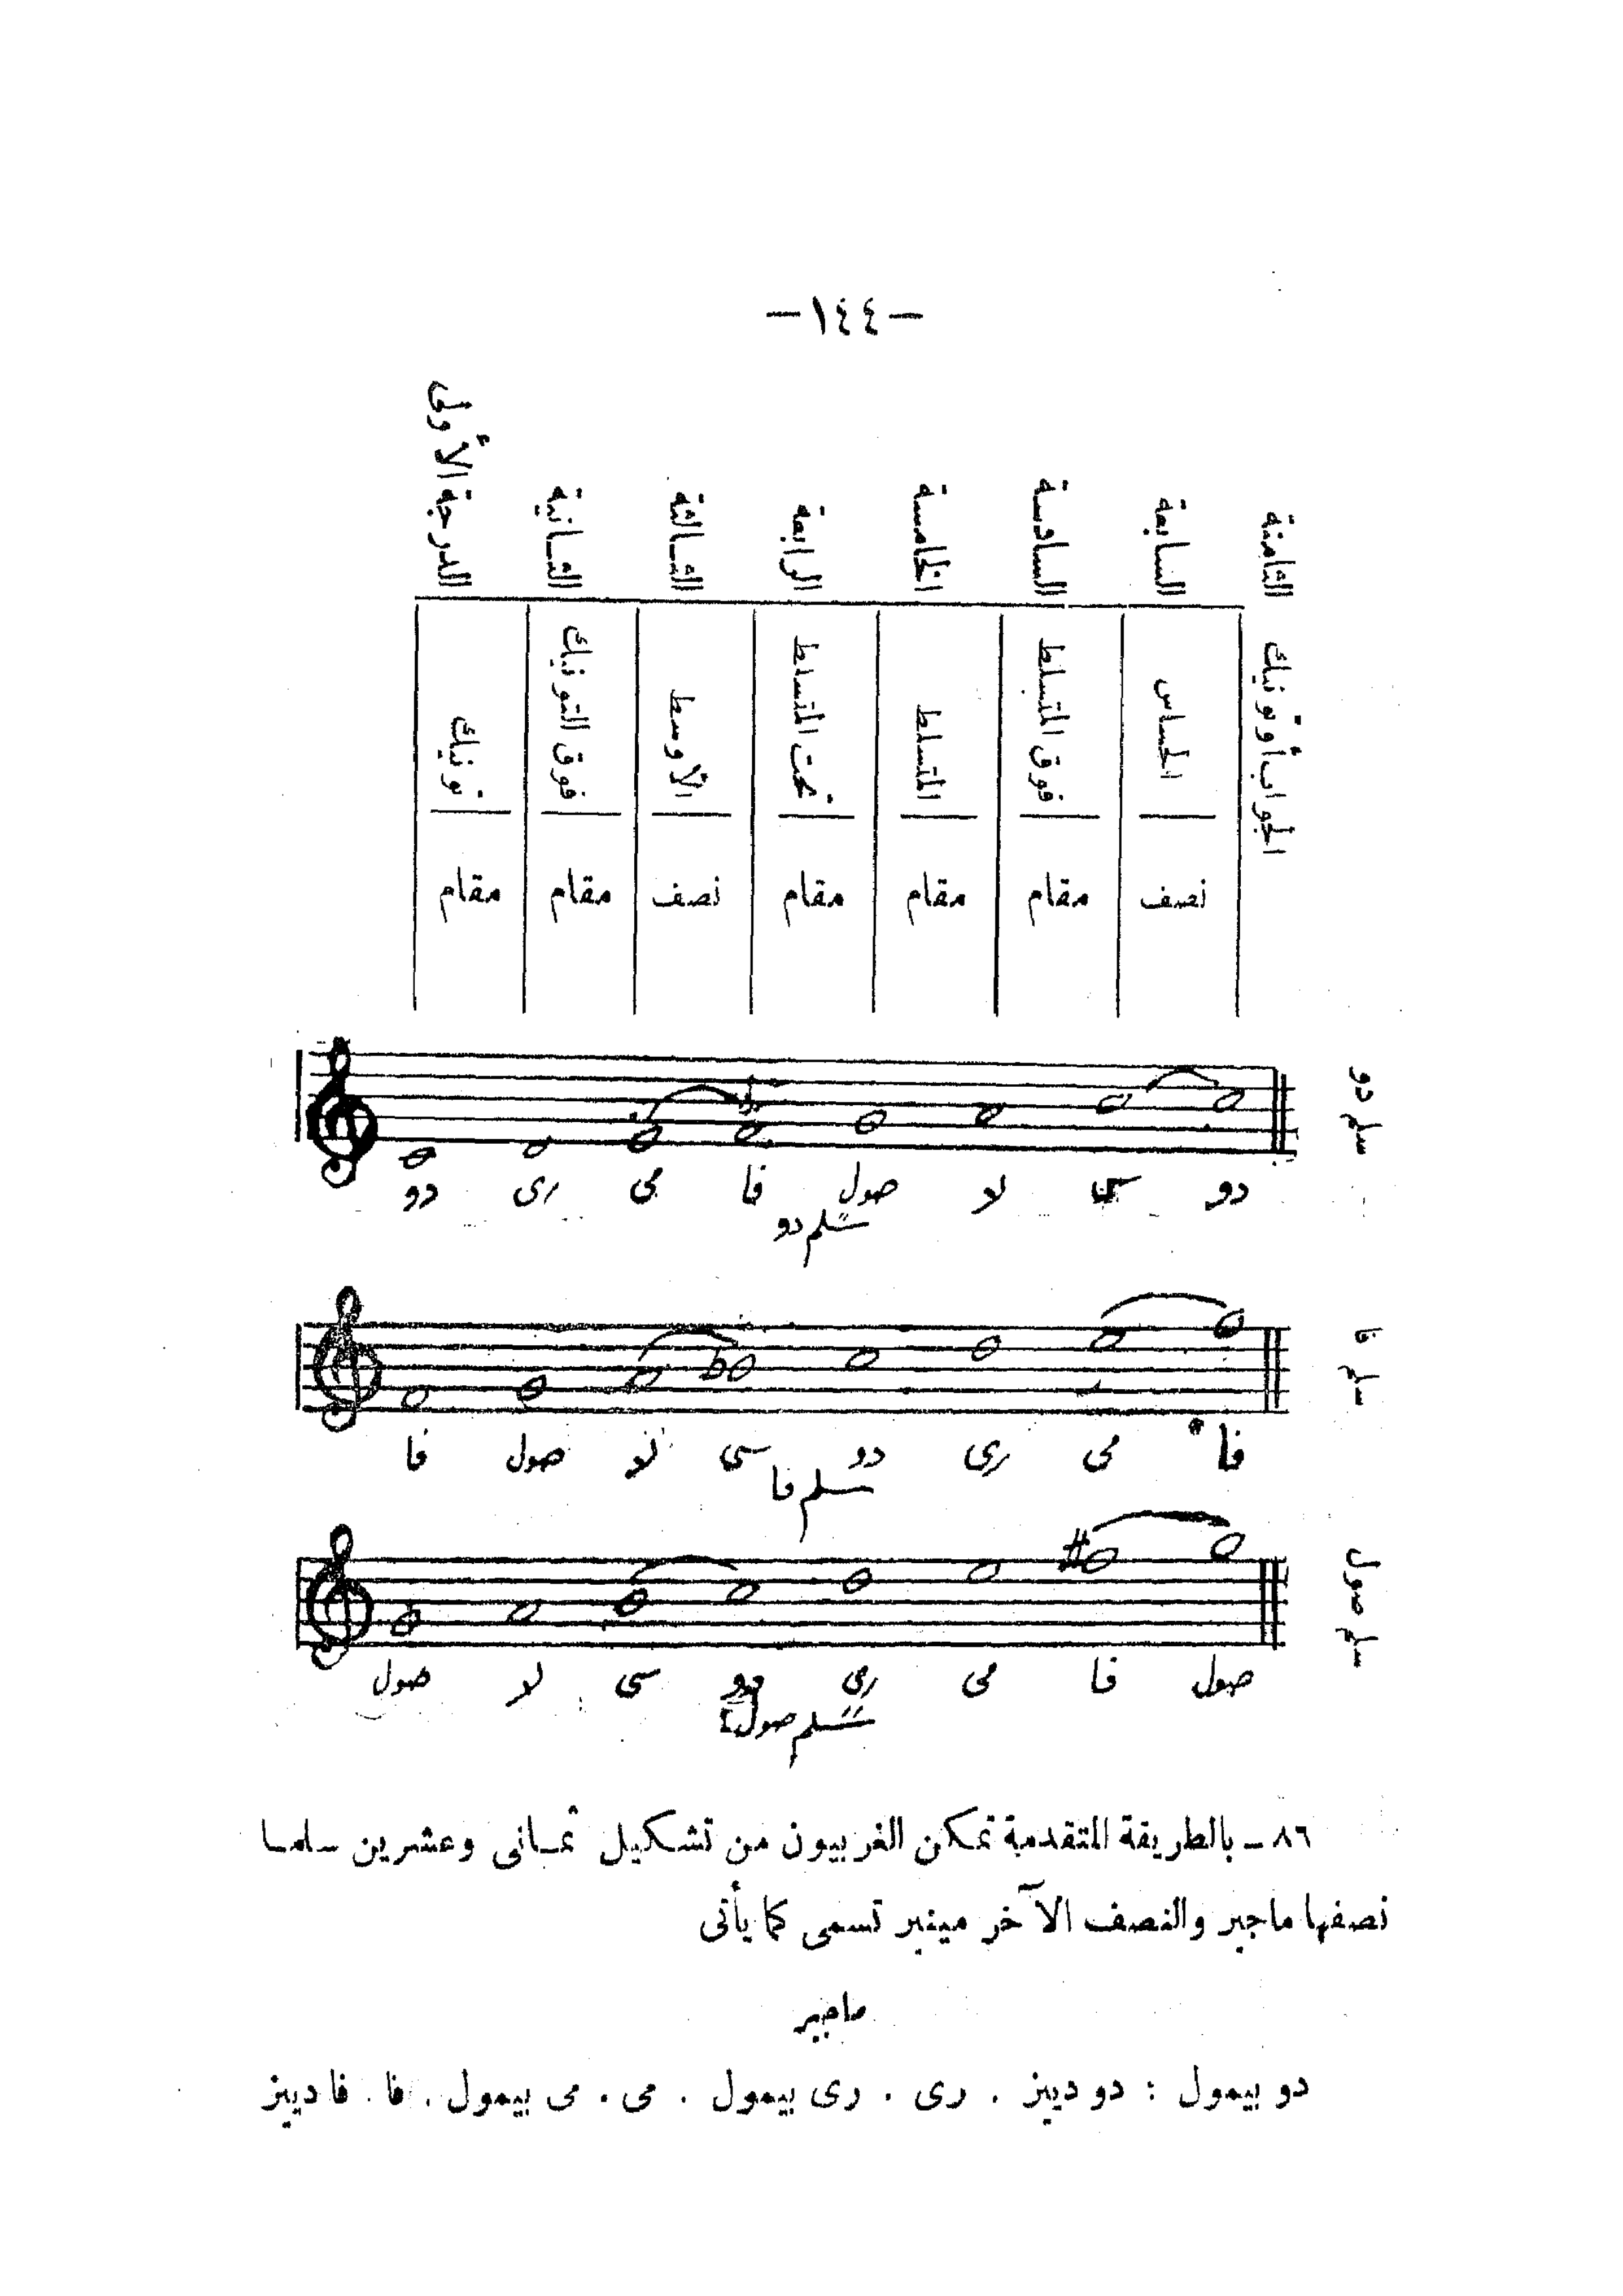 — ١٤٤ —
الدرجة الأولى
الثـانية
الثـالثة
الرابعة
الخامسة
السادسة
السابعة
الثامنة
تونيك
فوق التونيك
الأوسط
تحت المتسلط
المتسلط
فوق المتسلط
الحساس
الجواب أو تونيك
مقام مقام نصف مقام مقام مقام نصف
سلم دو
دو رى مى فا صول لا سى دو
سلم دو
سلم فا
فا صول لا سى دو رى مى فا
سلم فا
سلم صول
صول لا سى دو رى مى فا صول
سلم صول
٨٦ ــ بالطريقة المتقدمة تمكن الغربيون من تشكيل ثمـانى وعشرين سلمـا
نصفها ماجير والنصف الآخر مينير تسمى كما يأتى
ماجير
دو بيمول : دو دييز . رى . رى بيمول . مى . مى بيمول . فا . فا دييز